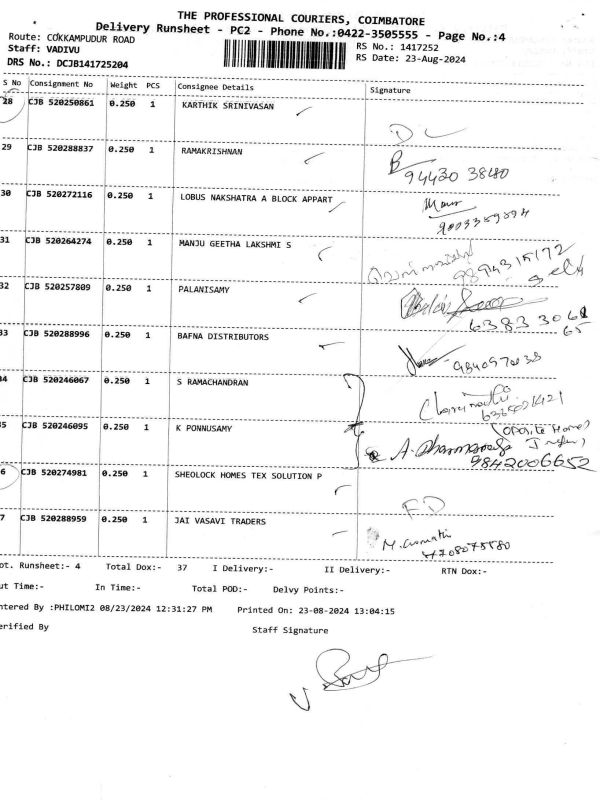 THE PROFESSIONAL COURIERS, COIMBATORE
Delivery Runsheet - PC2 - Phone No.:0422-3505555 - Page No.:4
Route: COKKAMPUDUR ROAD
RS No.: 1417252
Staff: VADIVU
RS Date: 23-Aug-2024
DRS No.: DCJB141725204
S No Consignment No Weight PCS Consignee Details Signature
28 CJB 520250861 0.250 1 KARTHIK SRINIVASAN
DL
29 CJB 520288837 0.250 1 RAMAKRISHNAN
94430 3840
30 CJB 520272116 0.250 1 LOBUS NAKSHATRA A BLOCK APPART
31 CJB 520264274 0.250 1 MANJU GEETHA LAKSHMI S
9894315172
32 CJB 520257809 0.250 1 PALANISAMY
63833 3061
65
33 CJB 520288996 0.250 1 BAFNA DISTRIBUTORS
34 CJB 520246067 0.250 1 S RAMACHANDRAN
35 CJB 520246095 0.250 1 K PONNUSAMY
9842006652
6 CJB 520274981 0.250 1 SHEOLOCK HOMES TEX SOLUTION P
FD
7 CJB 520288959 0.250 1 JAI VASAVI TRADERS
ot. Runsheet:- 4 Total Dox:- 37 I Delivery:- II Delivery:- RTN Dox:-
ut Time:- In Time:- Total POD:- Delvy Points:-
ntered By :PHILOMI2 08/23/2024 12:31:27 PM Printed On: 23-08-2024 13:04:15
erified By Staff Signature